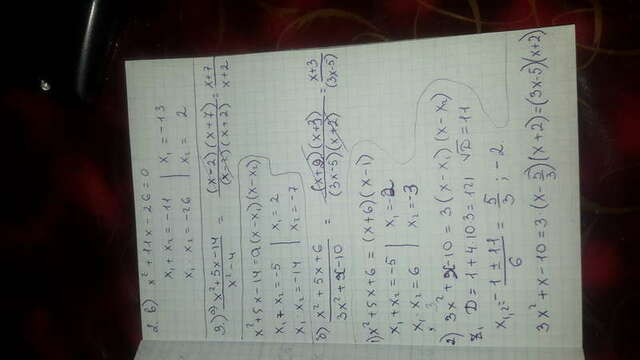 2. в) x² + 11x - 26 = 0
x₁ + x₂ = -11 | x₁ = -13
x₁ · x₂ = -26 | x₂ = 2
3.) а) (x² + 5x - 14)/(x² - 4) = ((x-2)(x+7))/((x-2)(x+2)) = (x+7)/(x+2)
x² + 5x - 14 = a(x-x₁)(x-x₂)
x₁ + x₂ = -5 | x₁ = 2
x₁ · x₂ = -14 | x₂ = -7
б) (x² + 5x + 6)/(3x² + x - 10) = ((x+2)(x+3))/((3x-5)(x+2)) = (x+3)/(3x-5)
1) x² + 5x + 6 = (x+6)(x-1)
x₁ + x₂ = -5 | x₁ = -2
x₁ · x₂ = 6 | x₂ = -3
2) 3x² + x - 10 = 3(x-x₁)(x-x₂)
D = 1 + 4·10·3 = 121 √D = 11
x₁,₂ = (-1 ± 11)/6 = 5/3 ; -2
3x² + x - 10 = 3(x - 5/3)(x+2) = (3x-5)(x+2)